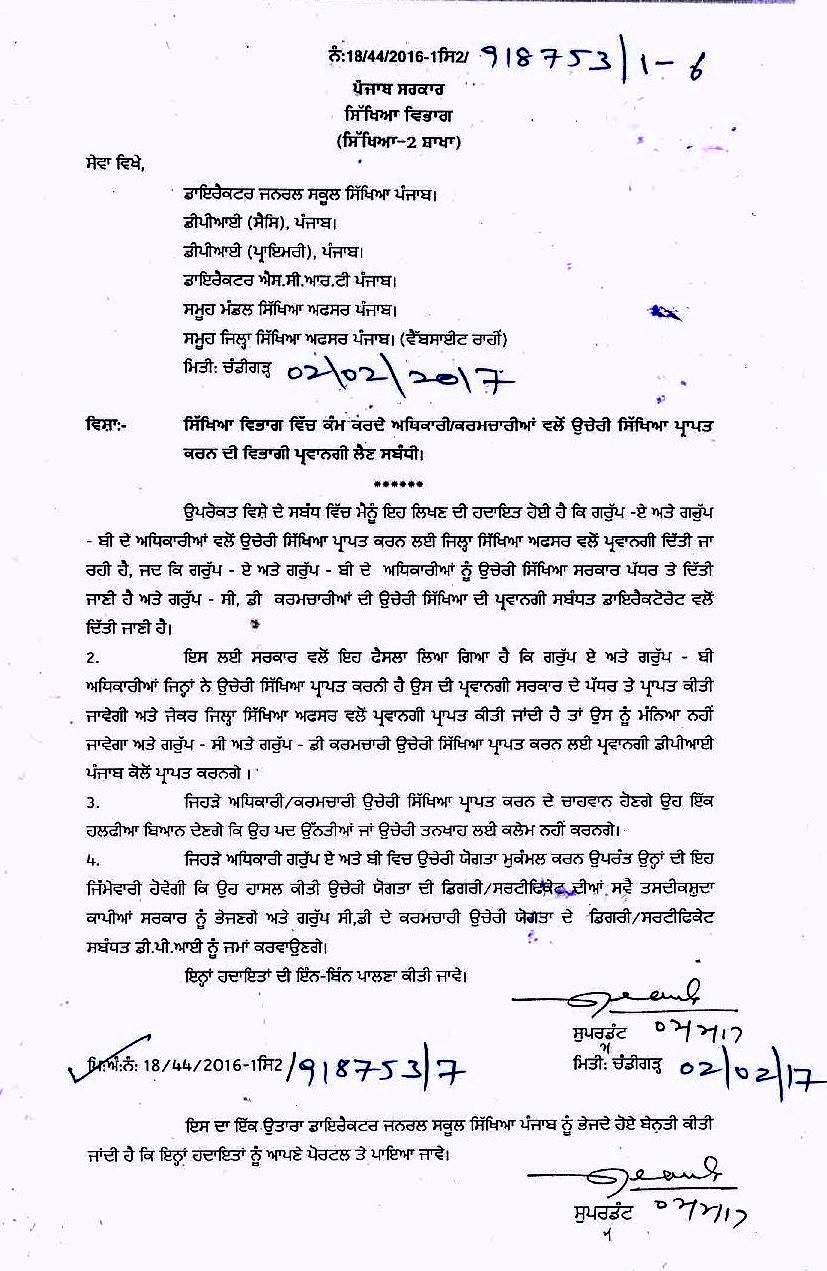 ਨੰ:18/44/2016-1ਸਿ2/ 918753/1-6
ਪੰਜਾਬ ਸਰਕਾਰ
ਸਿੱਖਿਆ ਵਿਭਾਗ
(ਸਿੱਖਿਆ-2 ਸ਼ਾਖਾ)
ਸੇਵਾ ਵਿਖੇ,
ਡਾਇਰੈਕਟਰ ਜਨਰਲ ਸਕੂਲ ਸਿੱਖਿਆ ਪੰਜਾਬ।
ਡੀਪੀਆਈ (ਸੈਸਿ), ਪੰਜਾਬ।
ਡੀਪੀਆਈ (ਪ੍ਰਾਇਮਰੀ), ਪੰਜਾਬ।
ਡਾਇਰੈਕਟਰ ਐਸ.ਸੀ.ਆਰ.ਟੀ ਪੰਜਾਬ।
ਸਮੂਹ ਮੰਡਲ ਸਿੱਖਿਆ ਅਫਸਰ ਪੰਜਾਬ।
ਸਮੂਹ ਜਿਲ੍ਹਾ ਸਿੱਖਿਆ ਅਫਸਰ ਪੰਜਾਬ। (ਵੈੱਬਸਾਈਟ ਰਾਹੀਂ)
ਮਿਤੀ: ਚੰਡੀਗੜ੍ਹ 02/02/2017
ਵਿਸ਼ਾ:- ਸਿੱਖਿਆ ਵਿਭਾਗ ਵਿੱਚ ਕੰਮ ਕਰਦੇ ਅਧਿਕਾਰੀ/ਕਰਮਚਾਰੀਆਂ ਵਲੋਂ ਉਚੇਰੀ ਸਿੱਖਿਆ ਪ੍ਰਾਪਤ
ਕਰਨ ਦੀ ਵਿਭਾਗੀ ਪ੍ਰਵਾਨਗੀ ਲੈਣ ਸਬੰਧੀ।
******
ਉਪਰੋਕਤ ਵਿਸ਼ੇ ਦੇ ਸਬੰਧ ਵਿੱਚ ਮੈਨੂੰ ਇਹ ਲਿਖਣ ਦੀ ਹਦਾਇਤ ਹੋਈ ਹੈ ਕਿ ਗਰੁੱਪ -ਏ ਅਤੇ ਗਰੁੱਪ
- ਬੀ ਦੇ ਅਧਿਕਾਰੀਆਂ ਵਲੋਂ ਉਚੇਰੀ ਸਿੱਖਿਆ ਪ੍ਰਾਪਤ ਕਰਨ ਲਈ ਜਿਲ੍ਹਾ ਸਿੱਖਿਆ ਅਫਸਰ ਵਲੋਂ ਪ੍ਰਵਾਨਗੀ ਦਿੱਤੀ ਜਾ
ਰਹੀ ਹੈ, ਜਦ ਕਿ ਗਰੁੱਪ - ਏ ਅਤੇ ਗਰੁੱਪ - ਬੀ ਦੇ ਅਧਿਕਾਰੀਆਂ ਨੂੰ ਉਚੇਰੀ ਸਿੱਖਿਆ ਸਰਕਾਰ ਪੱਧਰ ਤੇ ਦਿੱਤੀ
ਜਾਣੀ ਹੈ ਅਤੇ ਗਰੁੱਪ - ਸੀ, ਡੀ ਕਰਮਚਾਰੀਆਂ ਦੀ ਉਚੇਰੀ ਸਿੱਖਿਆ ਦੀ ਪ੍ਰਵਾਨਗੀ ਸਬੰਧਤ ਡਾਇਰੈਕਟੋਰੇਟ ਵਲੋਂ
ਦਿੱਤੀ ਜਾਣੀ ਹੈ।
2. ਇਸ ਲਈ ਸਰਕਾਰ ਵਲੋਂ ਇਹ ਫੈਸਲਾ ਲਿਆ ਗਿਆ ਹੈ ਕਿ ਗਰੁੱਪ ਏ ਅਤੇ ਗਰੁੱਪ - ਬੀ
ਅਧਿਕਾਰੀਆਂ ਜਿਨ੍ਹਾਂ ਨੇ ਉਚੇਰੀ ਸਿੱਖਿਆ ਪ੍ਰਾਪਤ ਕਰਨੀ ਹੈ ਉਸ ਦੀ ਪ੍ਰਵਾਨਗੀ ਸਰਕਾਰ ਦੇ ਪੱਧਰ ਤੇ ਪ੍ਰਾਪਤ ਕੀਤੀ
ਜਾਵੇਗੀ ਅਤੇ ਜੇਕਰ ਜਿਲ੍ਹਾ ਸਿੱਖਿਆ ਅਫਸਰ ਵਲੋਂ ਪ੍ਰਵਾਨਗੀ ਪ੍ਰਾਪਤ ਕੀਤੀ ਜਾਂਦੀ ਹੈ ਤਾਂ ਉਸ ਨੂੰ ਮੰਨਿਆ ਨਹੀਂ
ਜਾਵੇਗਾ ਅਤੇ ਗਰੁੱਪ - ਸੀ ਅਤੇ ਗਰੁੱਪ - ਡੀ ਕਰਮਚਾਰੀ ਉਚੇਰੀ ਸਿੱਖਿਆ ਪ੍ਰਾਪਤ ਕਰਨ ਲਈ ਪ੍ਰਵਾਨਗੀ ਡੀਪੀਆਈ
ਪੰਜਾਬ ਕੋਲੋਂ ਪ੍ਰਾਪਤ ਕਰਨਗੇ ।
3. ਜਿਹੜੇ ਅਧਿਕਾਰੀ/ਕਰਮਚਾਰੀ ਉਚੇਰੀ ਸਿੱਖਿਆ ਪ੍ਰਾਪਤ ਕਰਨ ਦੇ ਚਾਹਵਾਨ ਹੋਣਗੇ ਉਹ ਇੱਕ
ਹਲਫੀਆ ਬਿਆਨ ਦੇਣਗੇ ਕਿ ਉਹ ਪਦ ਉੱਨਤੀਆਂ ਜਾਂ ਉਚੇਰੀ ਤਨਖਾਹ ਲਈ ਕਲੇਮ ਨਹੀਂ ਕਰਨਗੇ।
4. ਜਿਹੜੇ ਅਧਿਕਾਰੀ ਗਰੁੱਪ ਏ ਅਤੇ ਬੀ ਵਿਚ ਉਚੇਰੀ ਯੋਗਤਾ ਮੁਕੰਮਲ ਕਰਨ ਉਪਰੰਤ ਉਨ੍ਹਾਂ ਦੀ ਇਹ
ਜਿੰਮੇਵਾਰੀ ਹੋਵੇਗੀ ਕਿ ਉਹ ਹਾਸਲ ਕੀਤੀ ਉਚੇਰੀ ਯੋਗਤਾ ਦੀ ਡਿਗਰੀ/ਸਰਟੀਫਿਕੇਟ ਦੀਆਂ ਸਵੈ ਤਸਦੀਕਸ਼ੁਦਾ
ਕਾਪੀਆਂ ਸਰਕਾਰ ਨੂੰ ਭੇਜਣਗੇ ਅਤੇ ਗਰੁੱਪ ਸੀ,ਡੀ ਦੇ ਕਰਮਚਾਰੀ ਉਚੇਰੀ ਯੋਗਤਾ ਦੇ ਡਿਗਰੀ/ਸਰਟੀਫਿਕੇਟ
ਸਬੰਧਤ ਡੀ.ਪੀ.ਆਈ ਨੂੰ ਜਮਾਂ ਕਰਵਾਉਣਗੇ।
ਇਨ੍ਹਾਂ ਹਦਾਇਤਾਂ ਦੀ ਇੰਨ-ਬਿੰਨ ਪਾਲਣਾ ਕੀਤੀ ਜਾਵੇ।
ਸੁਪਰਡੰਟ
ਪਿ:ਅੰ:ਨੰ: 18/44/2016-1ਸਿ2 /918753/7 ਮਿਤੀ: ਚੰਡੀਗੜ੍ਹ 02/02/17
ਇਸ ਦਾ ਇੱਕ ਉਤਾਰਾ ਡਾਇਰੈਕਟਰ ਜਨਰਲ ਸਕੂਲ ਸਿੱਖਿਆ ਪੰਜਾਬ ਨੂੰ ਭੇਜਦੇ ਹੋਏ ਬੇਨਤੀ ਕੀਤੀ
ਜਾਂਦੀ ਹੈ ਕਿ ਇਨ੍ਹਾਂ ਹਦਾਇਤਾਂ ਨੂੰ ਆਪਣੇ ਪੋਰਟਲ ਤੇ ਪਾਇਆ ਜਾਵੇ।
ਸੁਪਰਡੰਟ